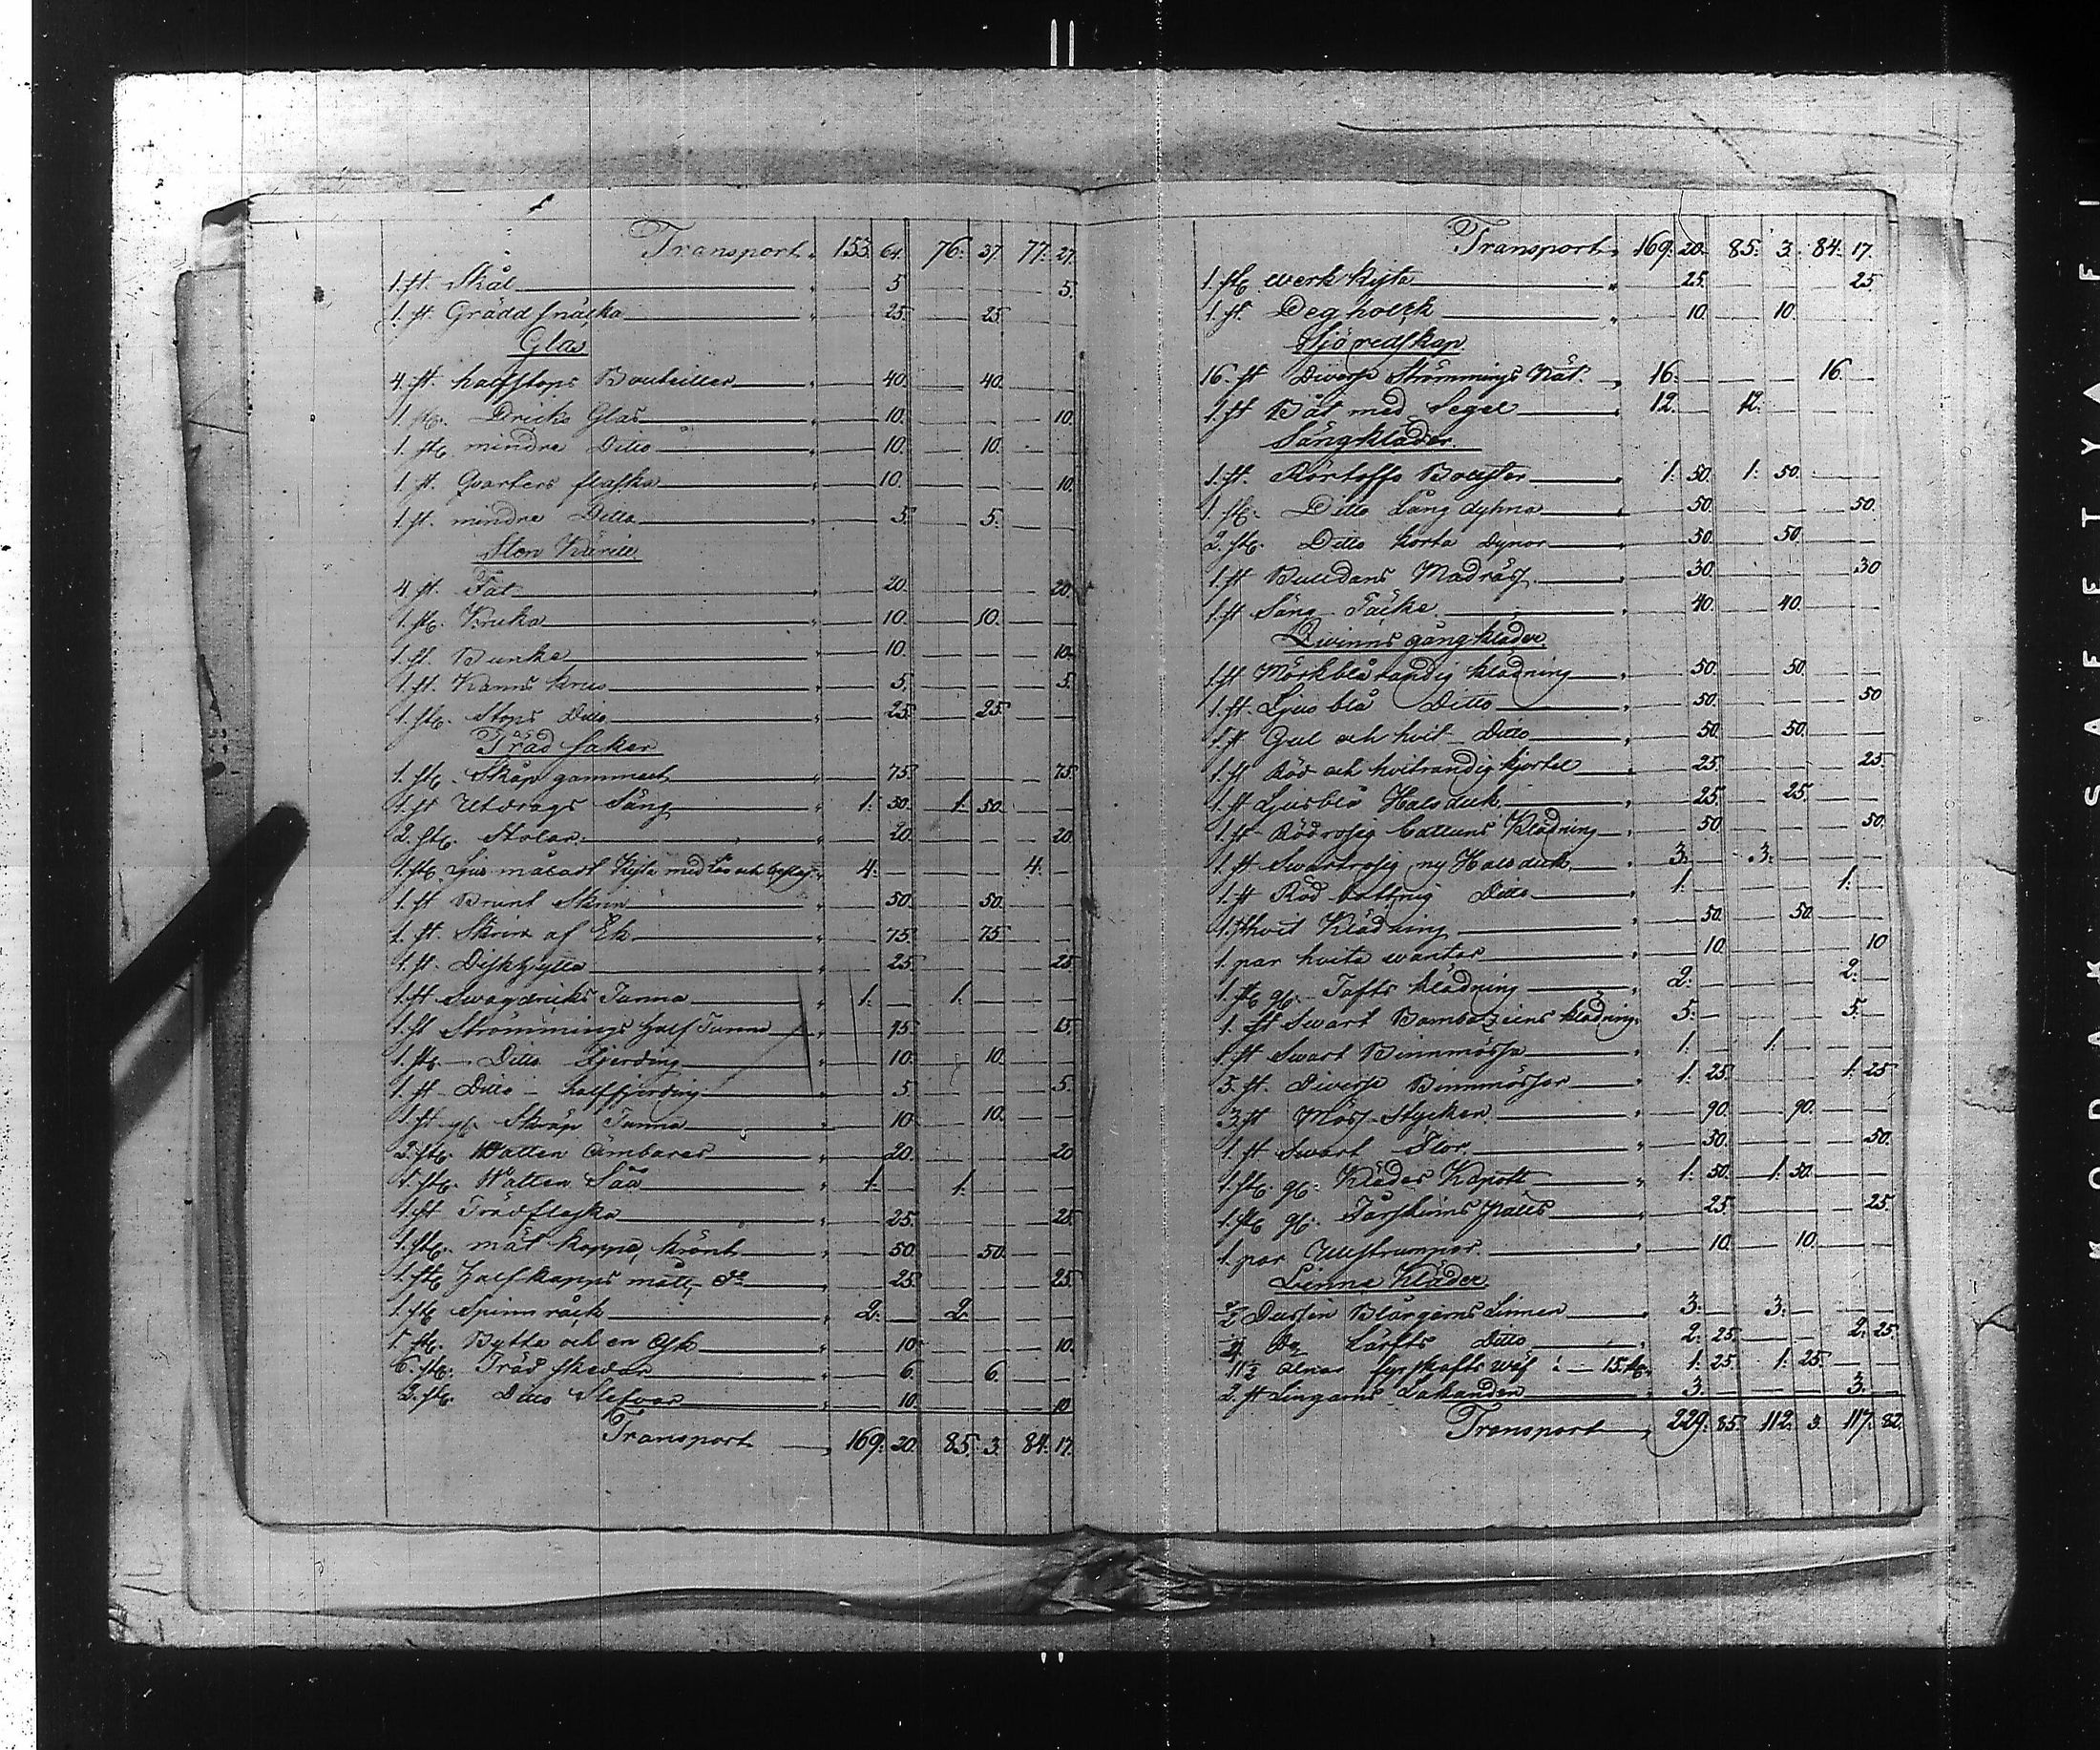 Transport 153. 64. 76. 37. 77. 27.
1. st. Skål " 5 5.
1. st. Gräddsnäcka " 25. 25.
Glas
4. st. halfstops Bouteiller " 40. 40.
1. st. Dricks Glas " 10. 10.
1. st. mindre Ditto " 10. 10.
1. st. Qvarters flaska " 10. 10.
1. st. mindre Ditto " 5. 5.
Sten Käril
4. st. Fat " 20. 20.
1. st. Kruka " 10. 10.
1. st. Bunke " 10. 10.
1. st. Kanns krus " 5. 5.
1. st. Stops Ditto " 25. 25.
Träd saker
1. st. Skåp gammalt " 75. 75.
1. st Utdrags Säng " 1. 50. 1. 50.
2. st. Stolar " 20. 20.
1. st. Ljus måladt Kista med Lås och beslag " 4. 4.
1. st Brunt Skrin " 50. 50.
1. st. Skrin af Ek " 75. 75.
1. st. Diskbytta " 25. 25
1. st Swagdricks Tunna " 1. 1.
1. st Strömmings half Tunna " 15 15.
1. st Ditto fjerding " 10. 10.
1. st Ditto halffjerding " 5. 5.
1. st gl. Skräp Tunna " 10. 10.
2. st. Watten Ämbarer " 20. 20
1. st. Watten Såå " 1. 1.
1. st Trädflaska " 25. 25.
1. st. mål kappe, krönt " 50. 50.
1. st Half kapps mått, do " 25. 25.
1. st Spinn råck " 2. 2.
1. st. Bytta och en Ask " 10. 10.
6. st. Träd skedar " 6. 6.
2. st. Ditto Slefvar " 10. 10
Transport " 169. 20. 85. 3. 84. 17.
Transport " 169. 20. 85. 3. 84. 17.
1. st. werk kista " 25. 25.
1. st. Deg holck " 10. 10.
Sjöredskap
16. st Diverse Strömmings Nät. " 16. 16.
1. st Båt med Segel " 12. 12.
Sängkläder
1. st. Bolster " 1. 50. 1. 50.
1. st. Ditto Lång dyhna " 50. 50.
2. st. Ditto korta dynor " 50. 50.
1. st Buldans Madrass " 30. 30
1. st Säng Täcke " 40. 40.
Qvinns gångkläder
1. st Mörkblårandig klädning " 50. 50.
1. st. Ljus blå Ditto " 50. 50
1. st Gul och hvit Ditto " 50. 50.
1. st Röd och hvitrandig kjortel " 25. 25.
1. st Ljusblå Halsduk " 25. 25.
1. st Rödrosig Cattuns Klädning " 50. 50.
1. st Swartrosig ny Halsduk " 3. 3.
1. st Röd bottnig Ditto 1. 1.
1. st hvit Klädning " 50. 50.
1. par hvita wantar " 10. 10
1. st gl. Tafts klädning " 2. 2.
1. st Swart Bombazeins klädning 5. 5.
1. st Swart Binnmössa " 1. 1.
5. st. Diverse Binnmössor " 1. 25. 1. 25
3. st Möss Stycken " 90. 90.
1. st Swart Flor " 50. 50.
1. st. gl. Klädes Kapott " 1. 50. 1. 50.
1. st gl. Fårskinns päls " 25. 25.
1. par Ullstrumpor " 10. 10.
Linne Kläder
1/2 Dussin Blårgarns Linnen " 3. 3.
Lärfts Ditto " 2. 25. 2. 25.
11 1/2 alnar fyrskafts wäf à 15. 1. 25. 1. 25.
2. st Lingarns Lakanden " 3. 3.
Transport " 229. 85. 112. 3. 117. 82.
KODAK SAFETY FI